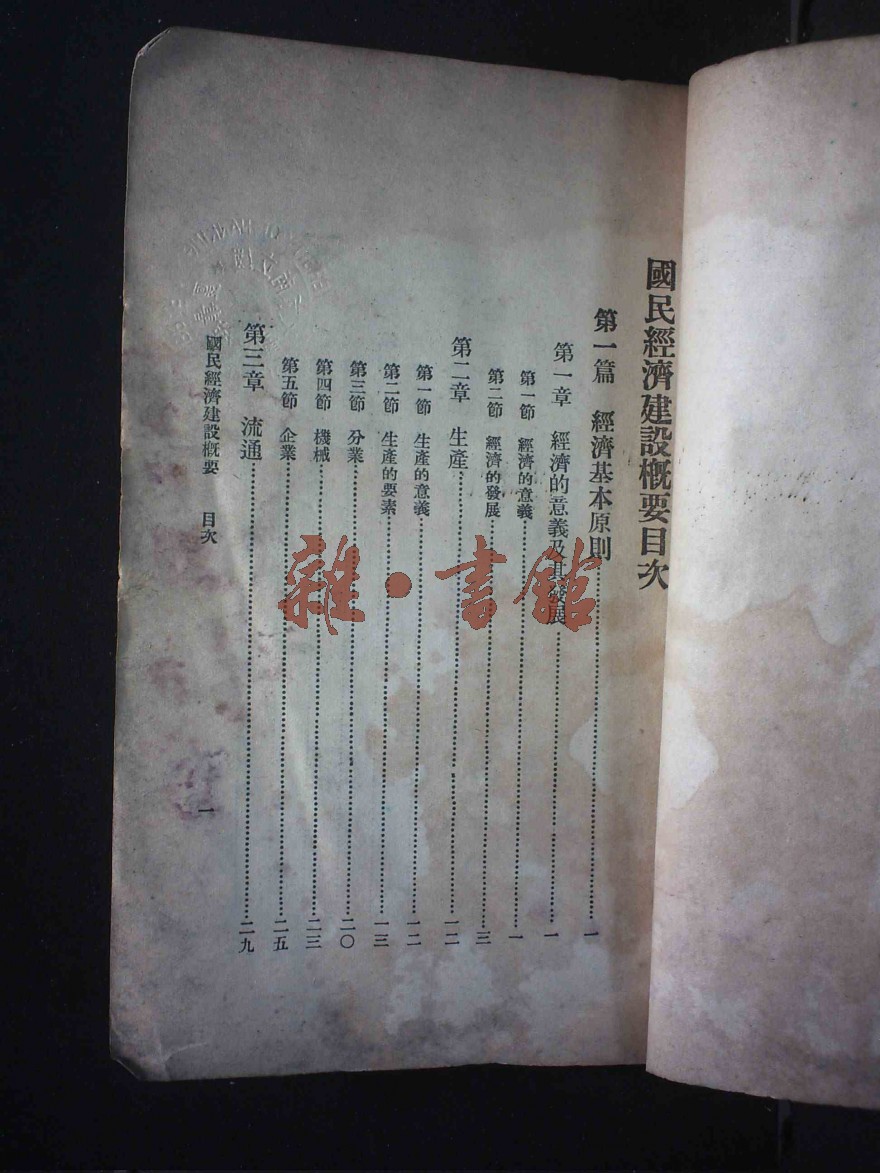 國民經濟建設概要目次
第一篇 經濟基本原則……一
第一章 經濟的意義及其發展……一
第一節 經濟的意義……一
第二節 經濟的發展……三
第二章 生產……一二
第一節 生產的意義……一二
第二節 生產的要素……一三
第三節 分業……二〇
第四節 機械……二三
第五節 企業……二五
第三章 流通……二九
國民經濟建設概要 目次
一
雜·書館